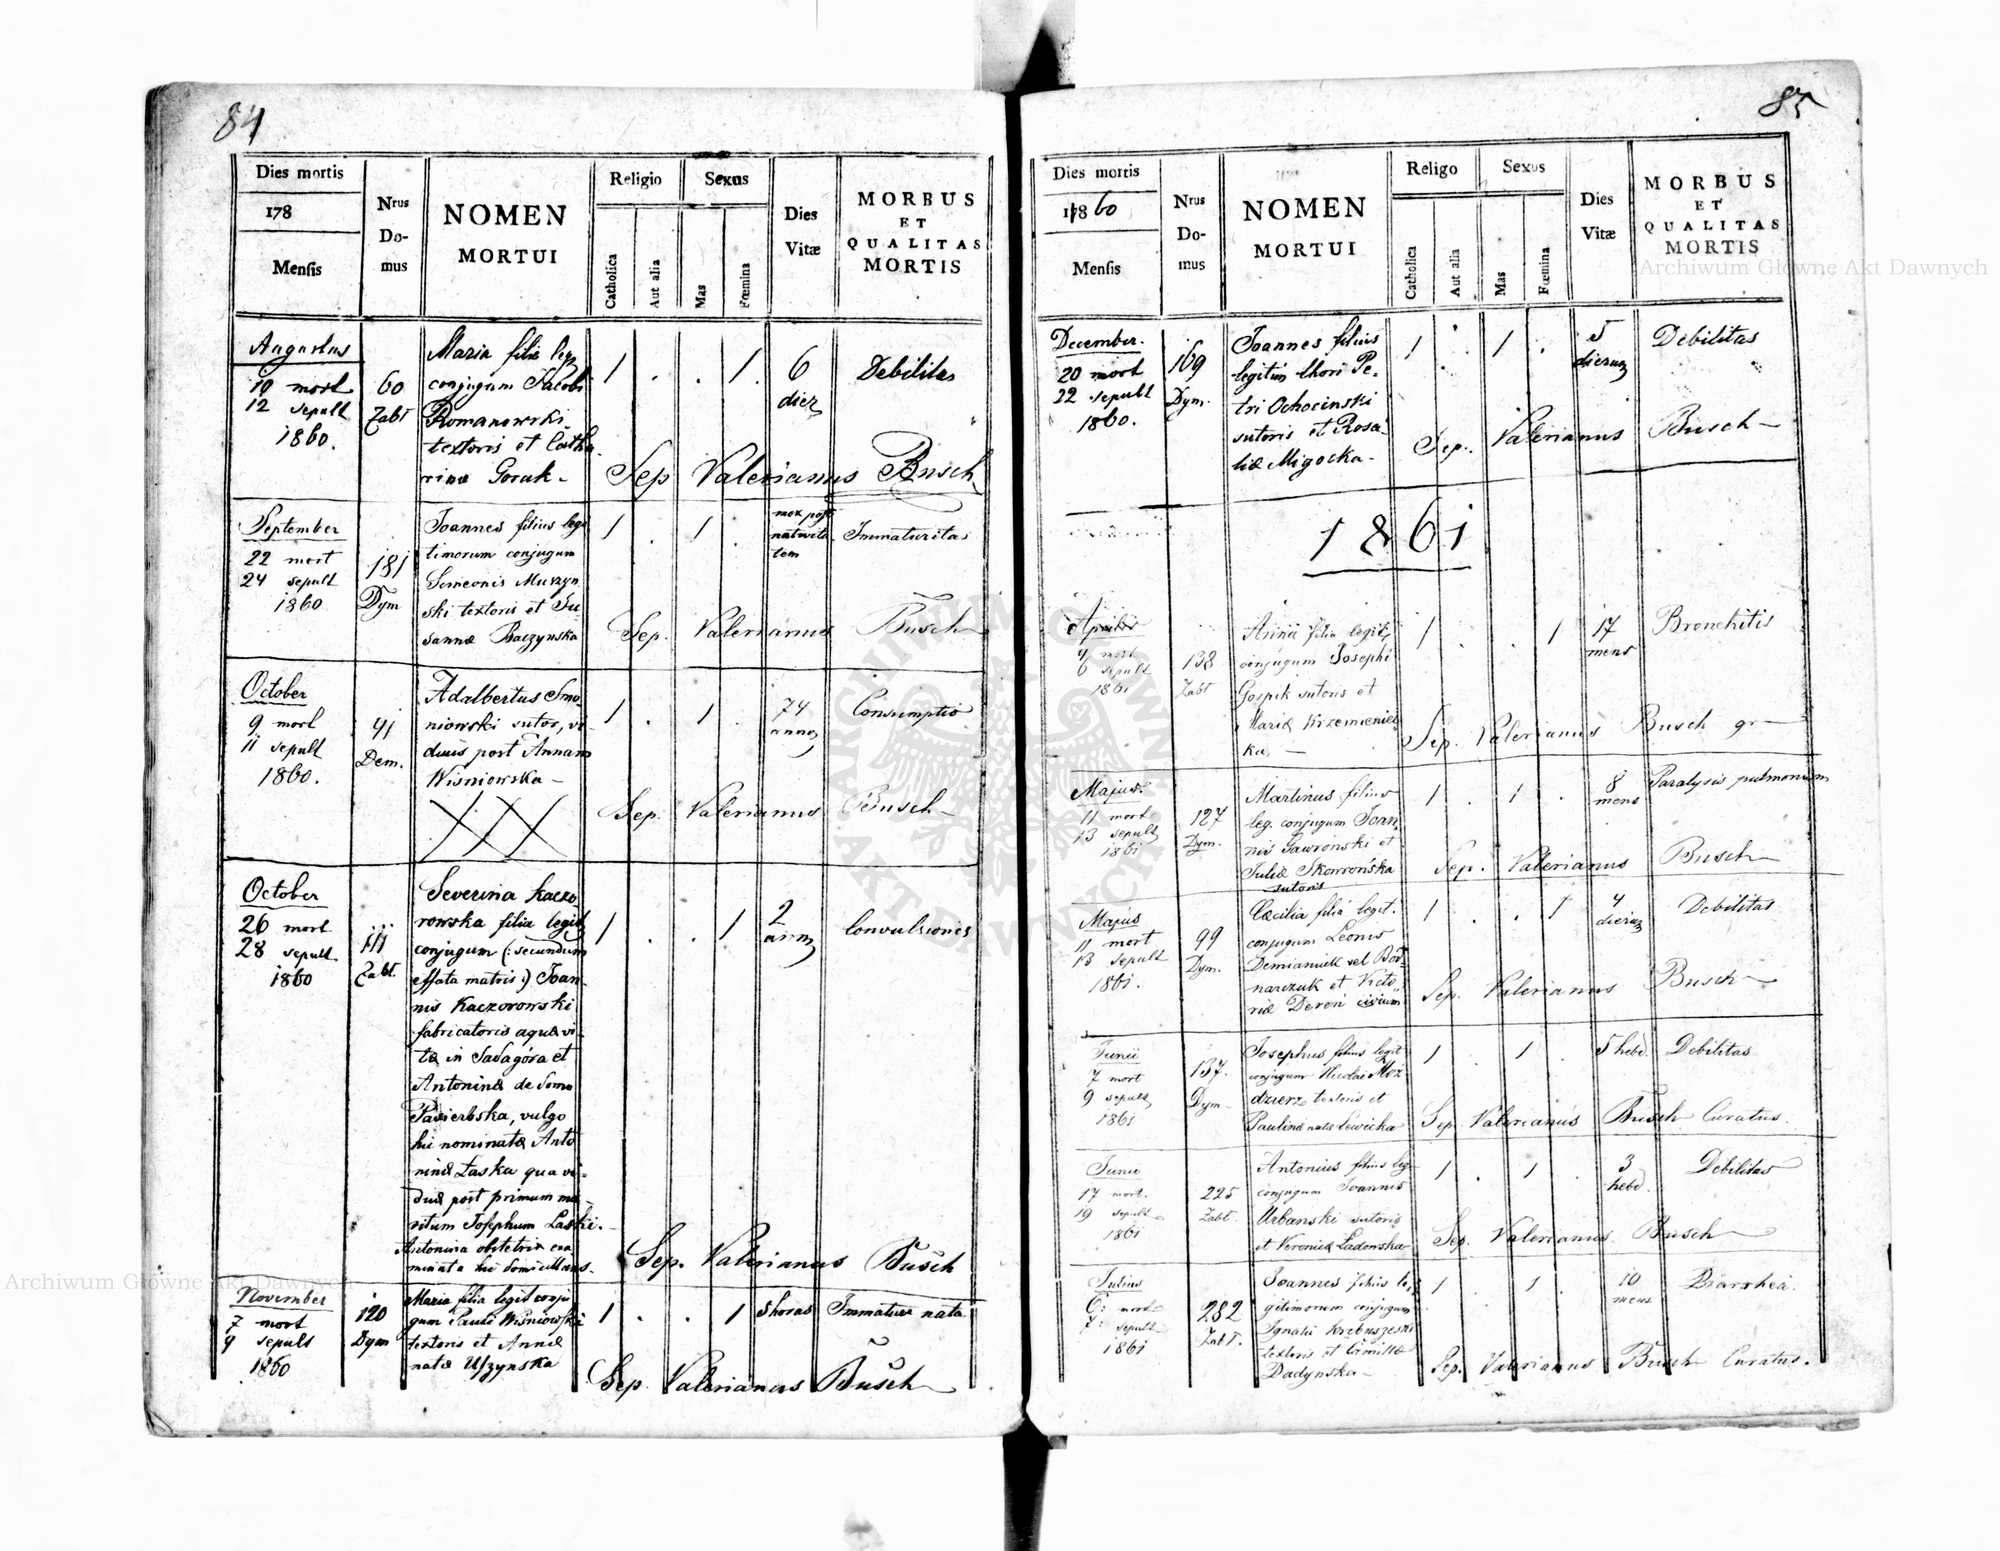 84
Dies mortis
178
Mensis
Nrus
Do-
mus
NOMEN
MORTUI
Religio
Catholica
Aut alia
Sexus
Mas
Fœmina
Dies
Vitæ
MORBUS
ET
QUALITAS
MORTIS
Augustus
10 mort
12 sepult
1860.
60
Zabt
Maria filia leg.
conjugum Jacobi
Romanowski
textoris et Catha
rinæ Goruk -
1 . . 1 .
6
dier
Debilitas
Sep Valerianus Busch
September
22 mort
24 sepult
1860
181
Dym
Joannes filius legi
timorum conjugum
Simeonis Muszyn
ski textoris et Su
sannæ Baczynska
1 . 1 .
mox post
nativita
tem
Immaturitas
Sep. Valerianus Busch
October
9 mort
11 sepult
1860.
41
Dem.
Adalbertus Smo
niowski sutor, vi-
duus post Annam
Wisniowska -
1 . 1 .
74
annor
Consumptio
Sep. Valerianus Busch
October
26 mort
28 sepult
1860
...
111
Zabt.
Severina Kaczo
rowska filia legit
conjugum (: secundum
effata matris :) Joan
nis Kaczorowski
fabricatoris aquæ vi-
tæ in Sadagóra et
Antoninæ de domo
Pasierbska, vulgo
hic nominatæ Anto
ninæ Łaska qua vi-
duæ post primum ma-
ritum Josephum Laski.
Antonina obstetrix exa
minata hic domicilians.
1 . . 1
2
annor
Convulsiones
Sep. Valerianus Busch
November
7 mort
9 sepult
1860
120
Dym
Maria filia legit conju
gum Pauli Wisniowski
textoris et Annæ
natæ Uszynska
1 . . 1
5 horas
Immatura nata
Sep. Valerianus Busch
85
Dies mortis
1860
Mensis
Nrus
Do-
mus
NOMEN
MORTUI
Religo
Catholica
Aut alia
Sexus
Mas
Fœmina
Dies
Vitæ
MORBUS
ET
QUALITAS
MORTIS
December.
20 mort
22 sepult
1860.
169
Dym.
Joannes filius
legitimi thori Pe-
tri Ochocinski
sutoris et Rosa-
liæ Migocka -
1 . 1 .
5
dierum
Debilitas
Sep. Valerianus Busch
1861
Aprilis
4 mort
6 sepult
1861
138
Zabt
Anna filia legit.
conjugum Josephi
Gospik sutoris et
Mariæ Krzemieniec
ka -
1 . . 1
17
mens
Bronchitis
Sep. Valerianus Busch gr
Majus.
11 mort
13 sepult
1861
127
Dym.
Martinus filius
leg. conjugum Joan-
nis Gawronski et
Juliæ Skowrońska
sutoris
1 . 1 .
8
mens
Paralysis pulmonum
Sep. Valerianus Busch
Majus
11 mort
13 sepult
1861.
99
Dym.
Cæcilia filia legit.
conjugum Leonis
Demianiuk vel Bod-
narczuk et Victo-
riæ Deren civium
1 . . 1
4
dierum
Debilitas
Sep. Valerianus Busch
Junii
7 mort
9 sepult
1861
137.
Dym
Josephus filius legit
conjugum Nicolai Moz
dzierz textoris et
Paulinæ natæ Lewicka
1 . 1 .
5 hebd.
Debilitas
Sep. Valerianus Busch Curatus.
Junii
17 mort.
19 sepult
1861
225
Zabt.
Antonius filius leg
conjugum Joannis
Urbanski sutoris
et Veronicæ Ladowska
1 . 1 .
3
hebd.
Debilitas
Sep. Valerianus Busch
Julius
6: mort
7: sepult
1861
282
Zabt.
Joannes filius le-
gitimorum conjugum
Ignatii
textoris et Camillæ
Dadynska -
1 . 1 .
10
mens
Diarrhea.
Sep. Valerianus Busch Curatus.
Archiwum Główne Akt Dawnych
Archiwum Główne Akt Dawnych
ARCHIWUM GŁÓWNE
AKT DAWNYCH